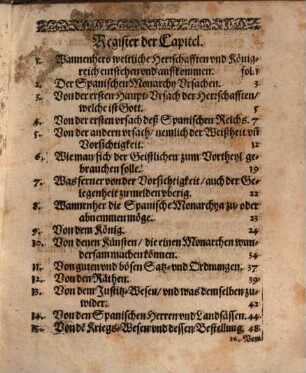 Register der Capitel.
1. Wannenhero weltliche Herrschafften vnd König-
reich entstehen vnd auffkommen. fol. 1
2. Der Spanischen Monarchy Vrsachen. 3
3. Von der ersten Haupt-Vrsach der Herrschafften/
welche ist Gott. 5
4. Von der ersten vrsach deß Spanischen Reichs. 7
5. Von der andern vrsach/ nemlich der Weißheit vñ
Vorsichtigkeit. 12
6. Wie man sich der Geistlichen zum Vortheyl ge-
brauchen solle. 19
7. Was ferner von der Vorsichtigkeit/ auch der Ge-
legenheit zu melden vberig. 22
8. Wannenher die Spanische Monarchya zu- oder
abnemmen möge. 23
9. Von dem König. 24
10. Von denen Künsten/ die einen Monarchen wun-
dersam machen können. 34
11. Von guten vnd bösen Satz- vnd Ordnungen. 37
12. Von den Räthen. 39
13. Von dem Justitz-Wesen/ vnd was demselben zu-
wider. 42
14. Von den Spanischen Herren vnd Landsässen. 44
15. Von dē Kriegs-Wesen vnd dessen Bestellung. 48
16. Von